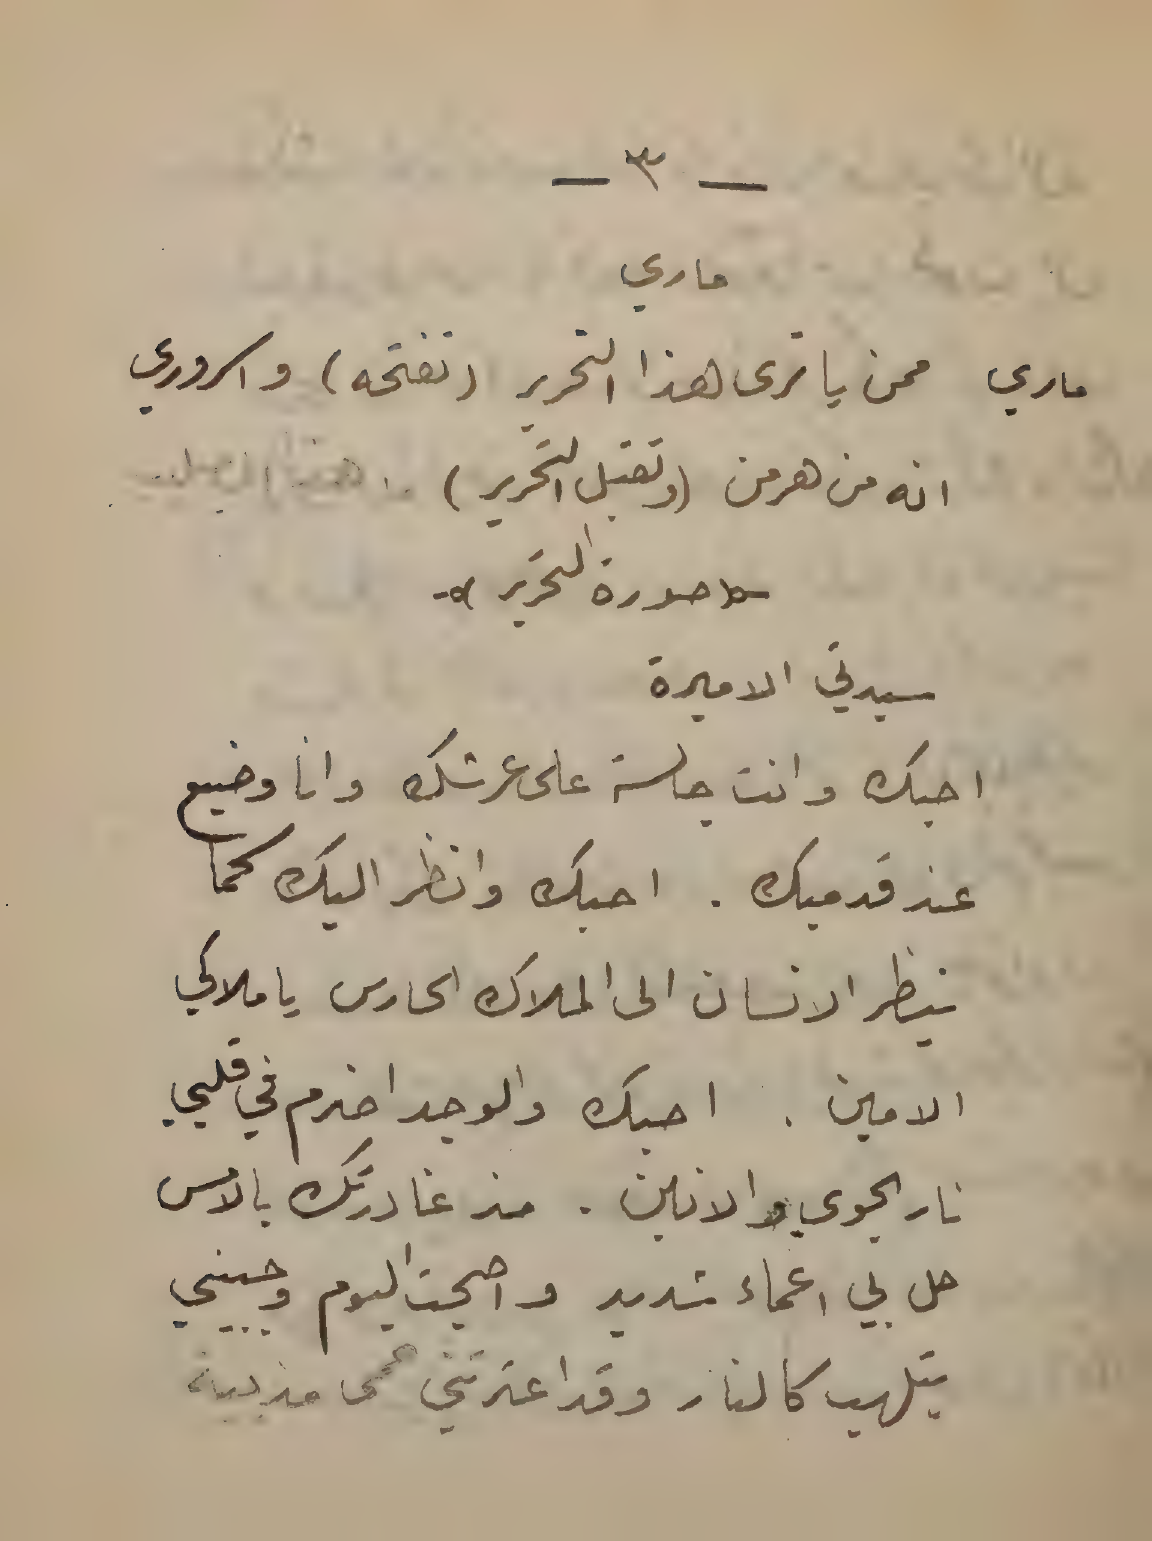 — ٣ —
ماري
ماري ممن يا ترى هذا التحرير (تفتحه) واسروري
انه من هرمن (وتقبل التحرير)
صورة التحرير
سيدتي الاميرة
احبك وانت جالسة على عرشك وانا وضيع
عند قدميك . احبك وانظر اليك كما
ينظر الانسان الى الملاك الحارس يا ملاكي
الامين . احبك والوجد اضرم في قلبي
نار الجوى والانين . منذ غادرتك بالامس
حل بي اغماء شديد واصبحت اليوم وجبيني
يتلهب كالنار وقد اعترتني حمى مذيبة